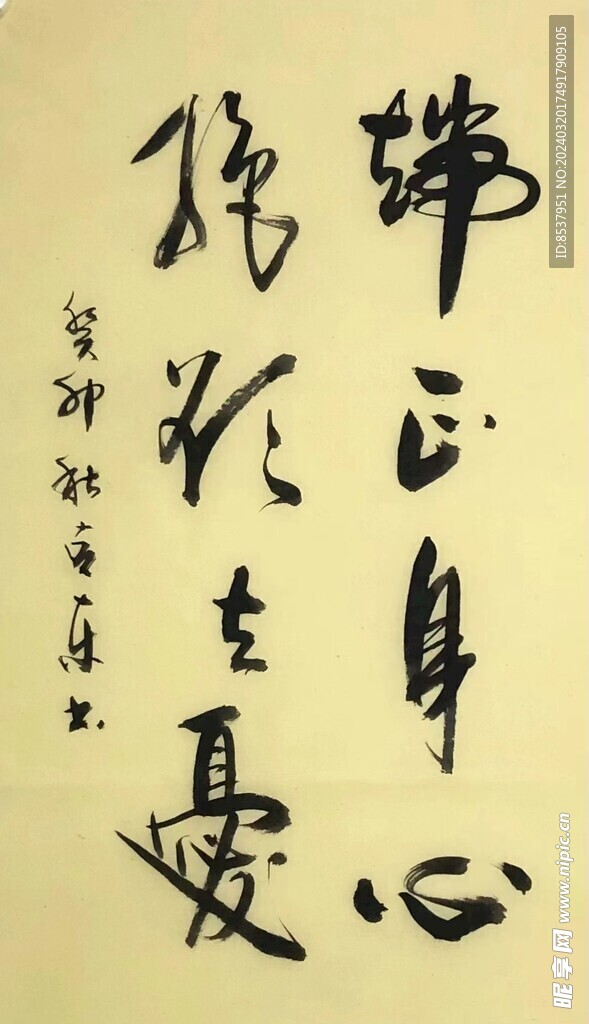 端正身心
绝欲去憂
癸卯秋吉东书
ID:8537951 NO:20240320174917909105
昵享网 www.nipic.cn